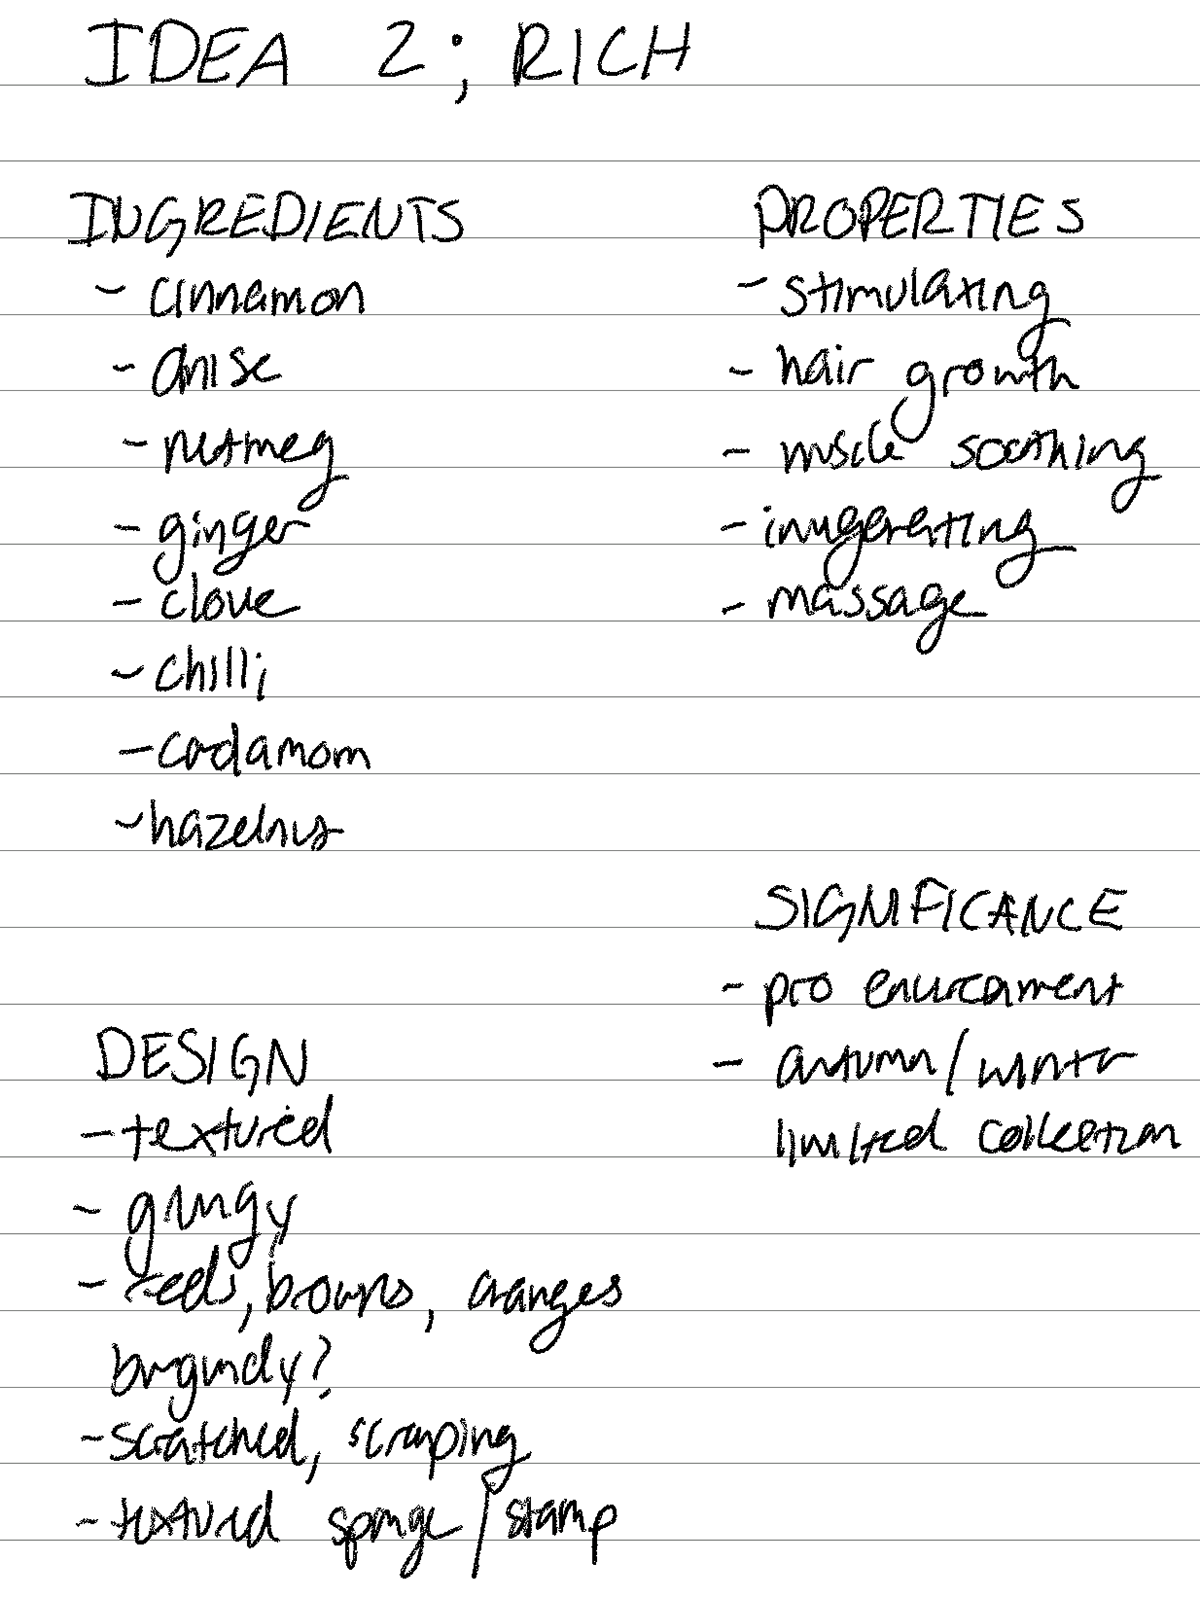 IDEA 2; RICH
INGREDIENTS
- cinnamon
- anise
- nutmeg
- ginger
- clove
- chilli
- cardamom
- hazelnut
DESIGN
- textured
- grungy
- reds, browns, oranges
burgundy?
- scratched, scraping
- textured sponge / stamp
PROPERTIES
- stimulating
- hair growth
- muscle soothing
- invigerating
- massage
SIGNIFICANCE
- pro environment
- autumn / winter
limited collection